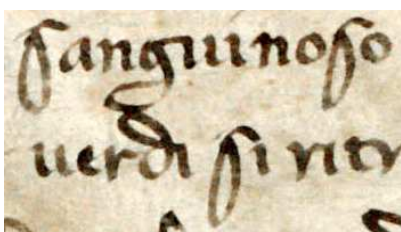 sanguinoso
uerdi si ritr